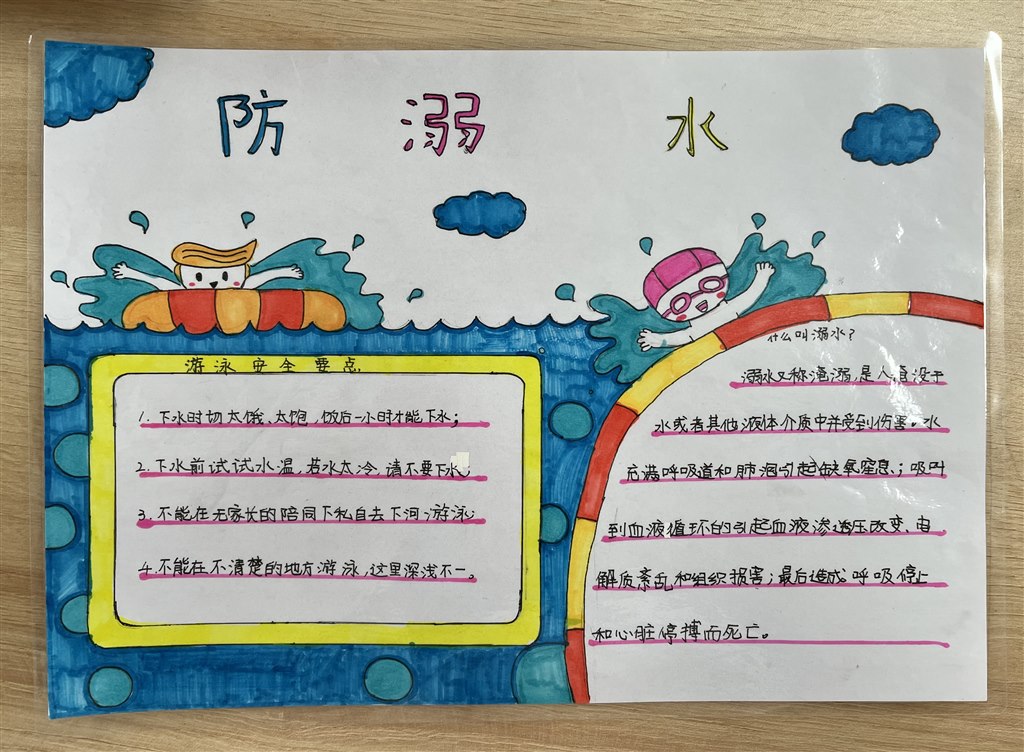 防 溺 水
游泳安全要点
1.下水时切太饿、太饱,饭后一小时才能下水;
2.下水前试试水温,若水太冷,请不要下水;
3.不能在无家长的陪同下私自去下河游泳
4.不能在不清楚的地方游泳,这里深浅不一。
什么叫溺水?
溺水又称淹溺,是人直没于
水或者其他液体介质中并受到伤害。水
充满呼吸道和肺泡引起缺氧窒息;吸叫
到血液循环的引起血液渗透压改变、电
解质紊乱和组织损害;最后造成呼吸停止
和心脏停搏而死亡。